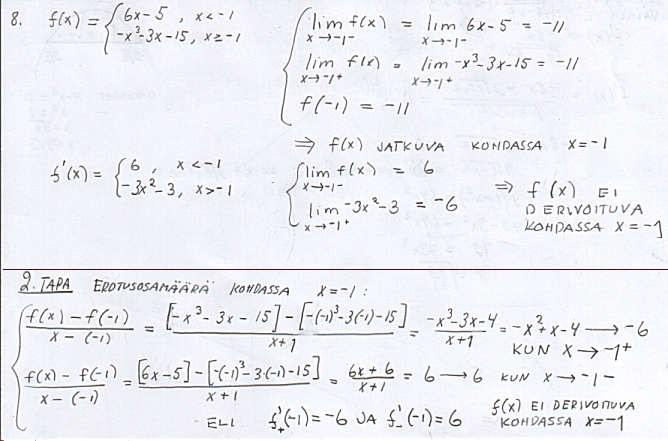 8. f(x) = { 6x-5 , x<-1
-x³-3x-15, x≥-1
lim f(x) = lim 6x-5 = -11
x→-1- x→-1-
lim f(x) = lim -x³-3x-15 = -11
x→-1+ x→-1+
f(-1) = -11
⇒ f(x) JATKUVA KOHDASSA x=-1
f'(x) = { 6 , x<-1
-3x²-3, x>-1
lim f(x) = 6
x→-1-
lim -3x²-3 = -6
x→-1+
⇒ f(x) EI
DERIVOITUVA
KOHDASSA x=-1
2. TAPA EROTUSOSAMÄÄRÄ KOHDASSA x=-1:
(f(x) - f(-1))/(x - (-1)) = ([-x³-3x-15]-[-(-1)³-3(-1)-15])/(x+1) = (-x³-3x-4)/(x+1) = -x²+x-4 → -6
KUN x→-1+
(f(x) - f(-1))/(x - (-1)) = ([6x-5]-[-(-1)³-3·(-1)-15])/(x+1) = (6x+6)/(x+1) = 6 → 6 KUN x→-1-
ELI f'₊(-1)=-6 JA f'₋(-1)=6
f(x) EI DERIVOITUVA
KOHDASSA x=-1